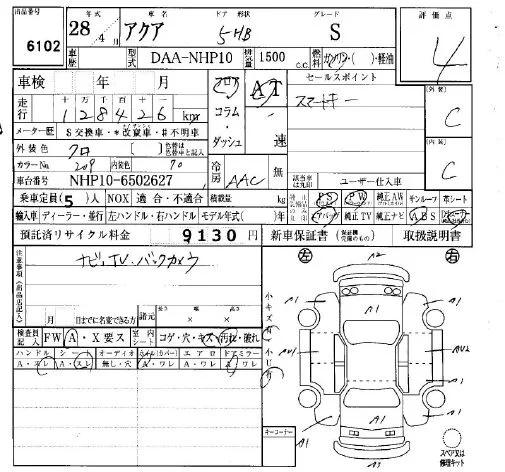 出品番号 6102
年式 28年4月 車名 アクア ドア 形状 5HB グレード S
評価点 4
車歴 型式 DAA-NHP10 排気量 1500 c.c. 燃料 ガソリン・( )・軽油
車検 年 月
フロア・コラム・ダッシュ
AT
速
セールスポイント
スマートキー
走行 十 万 千 百 十 一
128426 km
メーター歴 S交換車・*改竄車・#不明車
外装色 クロ
カラーNo. 209 内装色 クロ
車台番号 NHP10-6502627
冷房 AAC 無
該当車は丸印
ユーザー仕入車
(外装) C
(内装) C
乗車定員(5)人 NOX 適合・不適合 積載量 kg
PS PW 純正AW サンルーフ 革シート
輸入車 ディーラー・並行 左ハンドル・右ハンドル モデル年式( )年
エアバッグ 純正TV 純正ナビ ABS
預託済リサイクル料金 9130円
新車保証書 取扱説明書
注意事項(出品店記入)
ナビ、TV、バックカメラ
月 日までに名変できる方 諸元 長さ × 幅 × 高さ
検査員記入 FW A・X要ス 室内シート コゲ・穴・キズ・汚れ・破れ
ハンドル シート オーディオ ホイル(カバー) エアロ ドアミラー
A・スレ A・スレ 無し・穴 A・ワレ A・ワレ A ワレ
左 右
小キズ有
小ヒ有
コーキーナー
A2
A1
A1
AU1
AU2
A1
A1
A1
A1
A1
スペア又は
修理キット